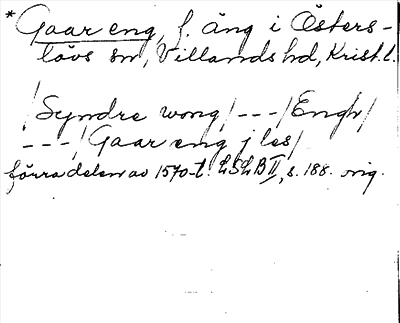 * Gaar eng, f. äng i Östers-
lövs sn, Villands hd, Krist. l.
/Syndre wong/ ---/Engh/
---/Gaar eng j les/
förra delen av 1570-t. LSLB II, s. 188. orig.